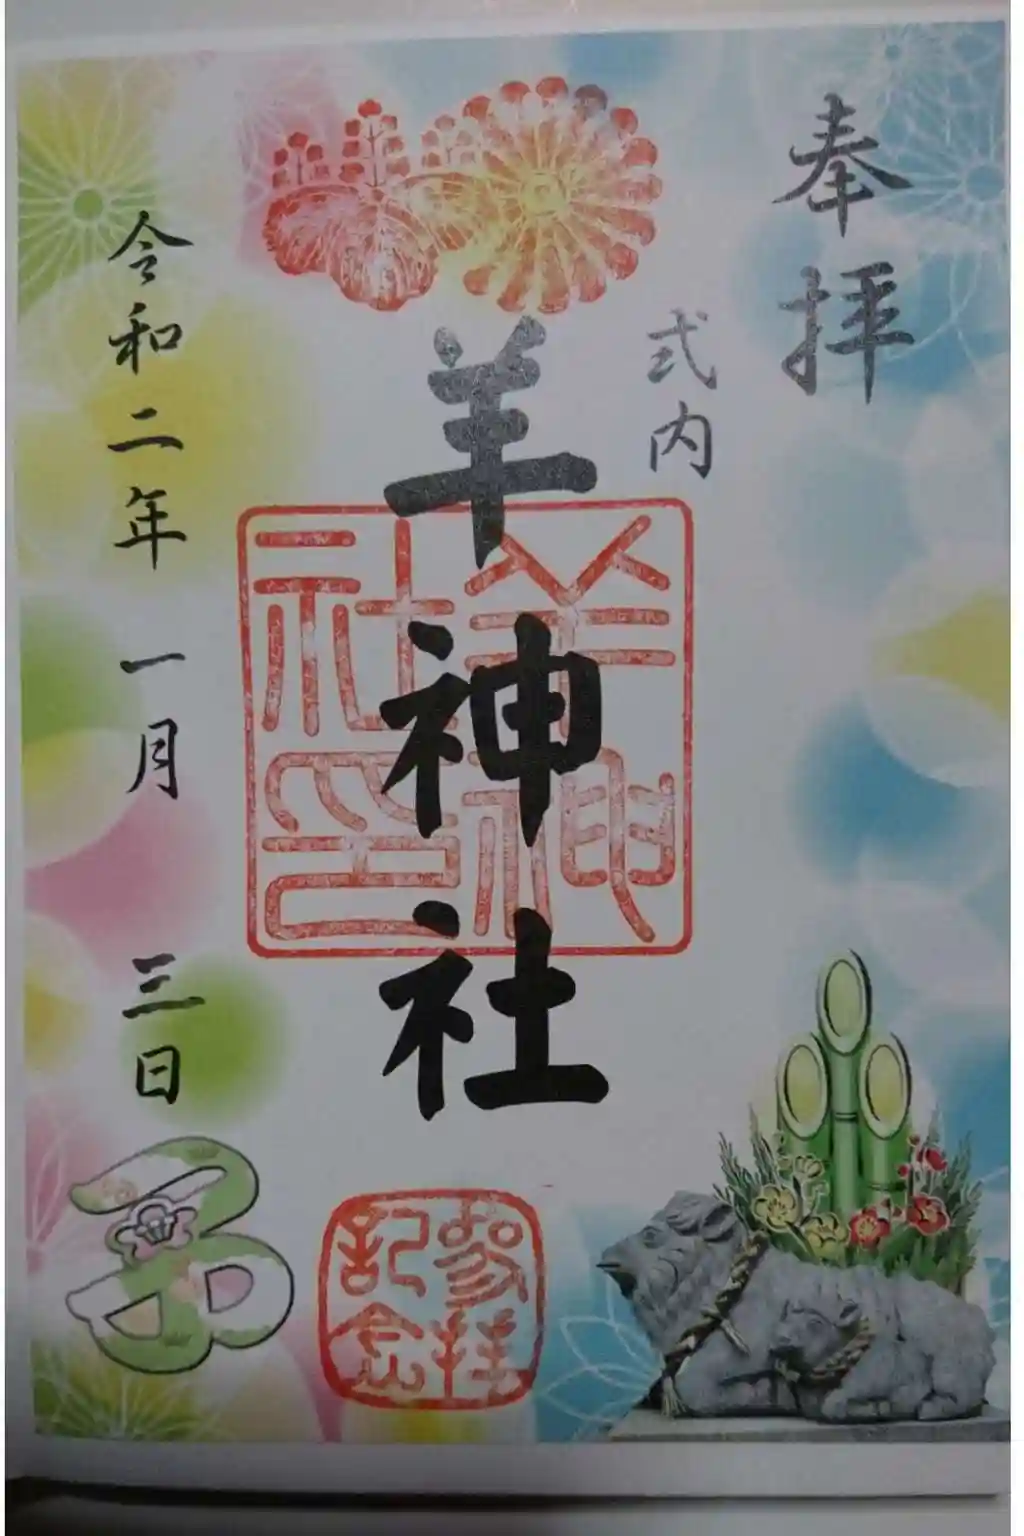 奉拝
式内
羊神社
羊神社印
令和二年一月三日
子
参拝記念